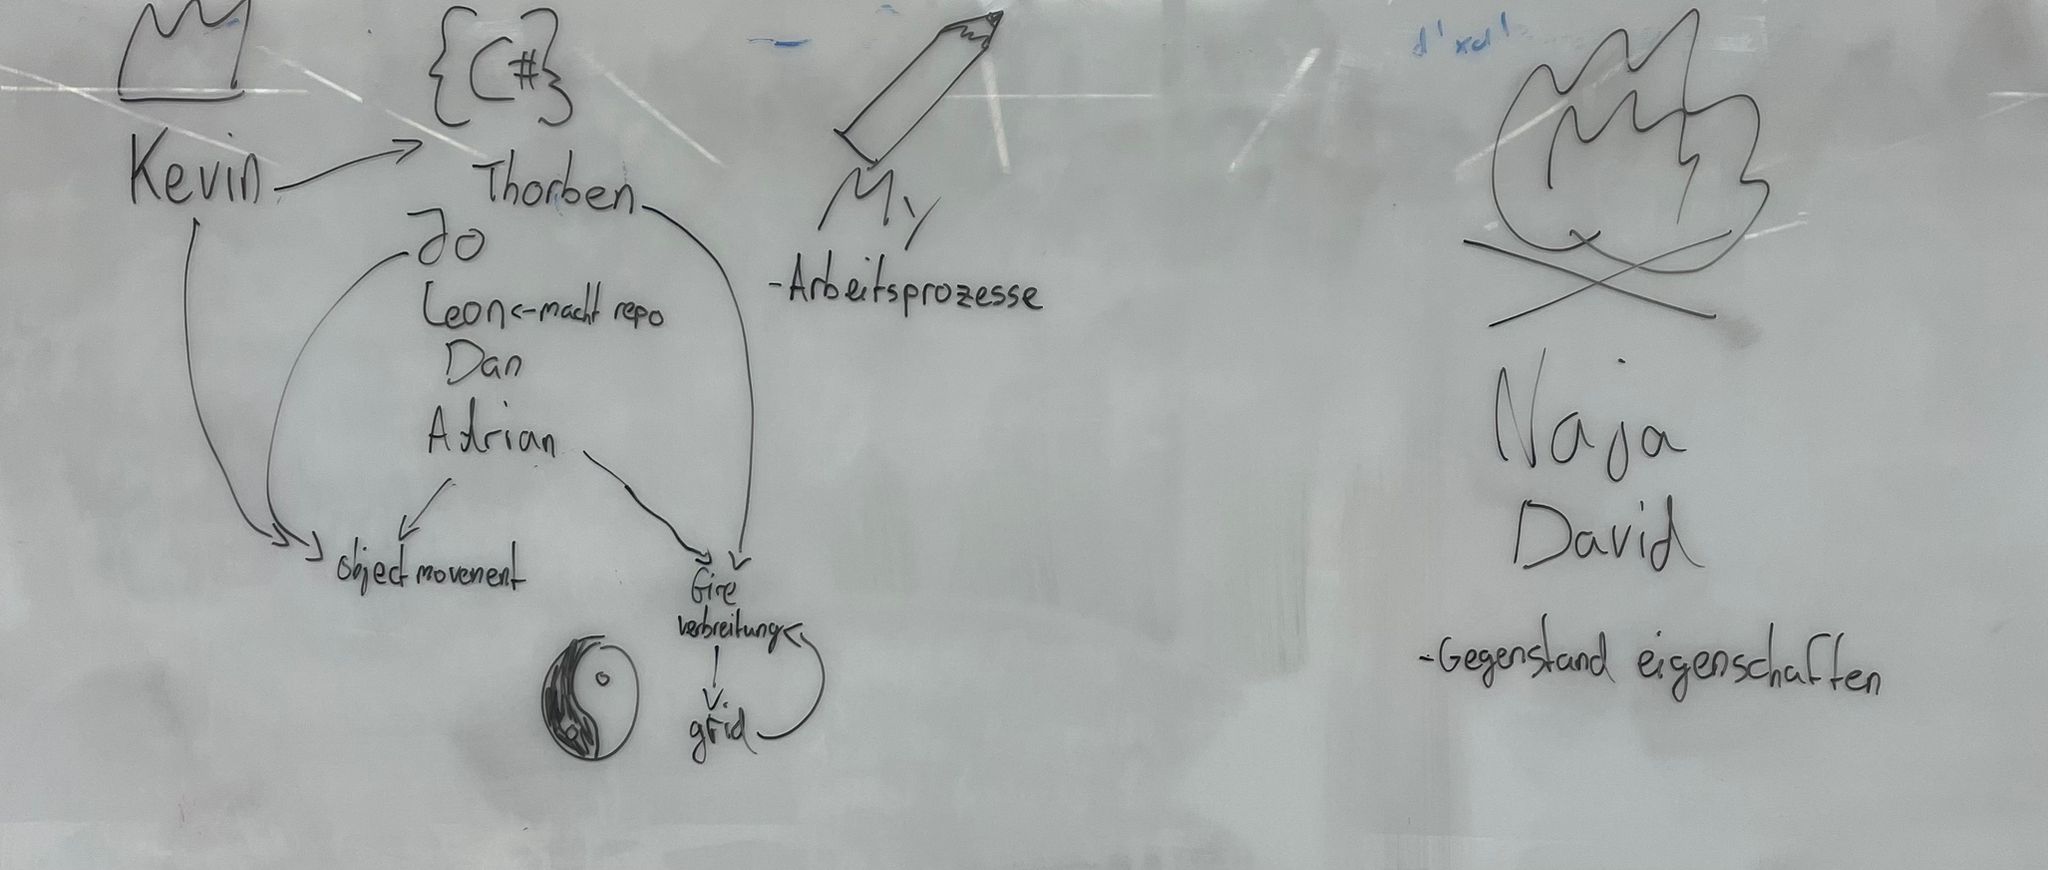 {C#}
Kevin
Thorben
Jo
Leon<-macht repo
Dan
Adrian
object movement
Fire
verbreitung
grid
My
-Arbeitsprozesse
Naja
David
-Gegenstand eigenschaften